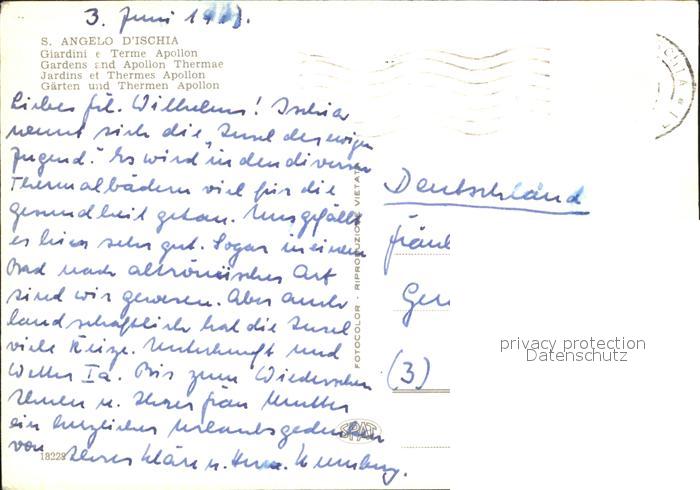 3. Juni
S. ANGELO D'ISCHIA
Giardini e Terme Apollon
Gardens and Apollon Thermae
Jardins et Thermes Apollon
Gärten und Thermen Apollon
Liebes frl. Wilhelms! Ischia
nennt sich die „Insel der ewigen
Jugend." Es wird in den diversen
Thermalbädern viel für die
Gesundheit getan. Uns gefällt
es hier sehr gut. Sogar in einem
Bad nach altrömischer Art
sind wir gewesen. Aber auch
landschaftlich hat die Insel
viele Reize. Unterkunft und
Wetter Ia. Bis zum Wiedersehen
Ihnen u. Ihrer frau Mutter
ein herzliches Urlaubsgedenken
von Ihrer Kläre u. Herm.
18228
FOTOCOLOR - RIPRODUZIONE VIETATA
SPAT
Deutschland
fräul
(3)
privacy protection
Datenschutz